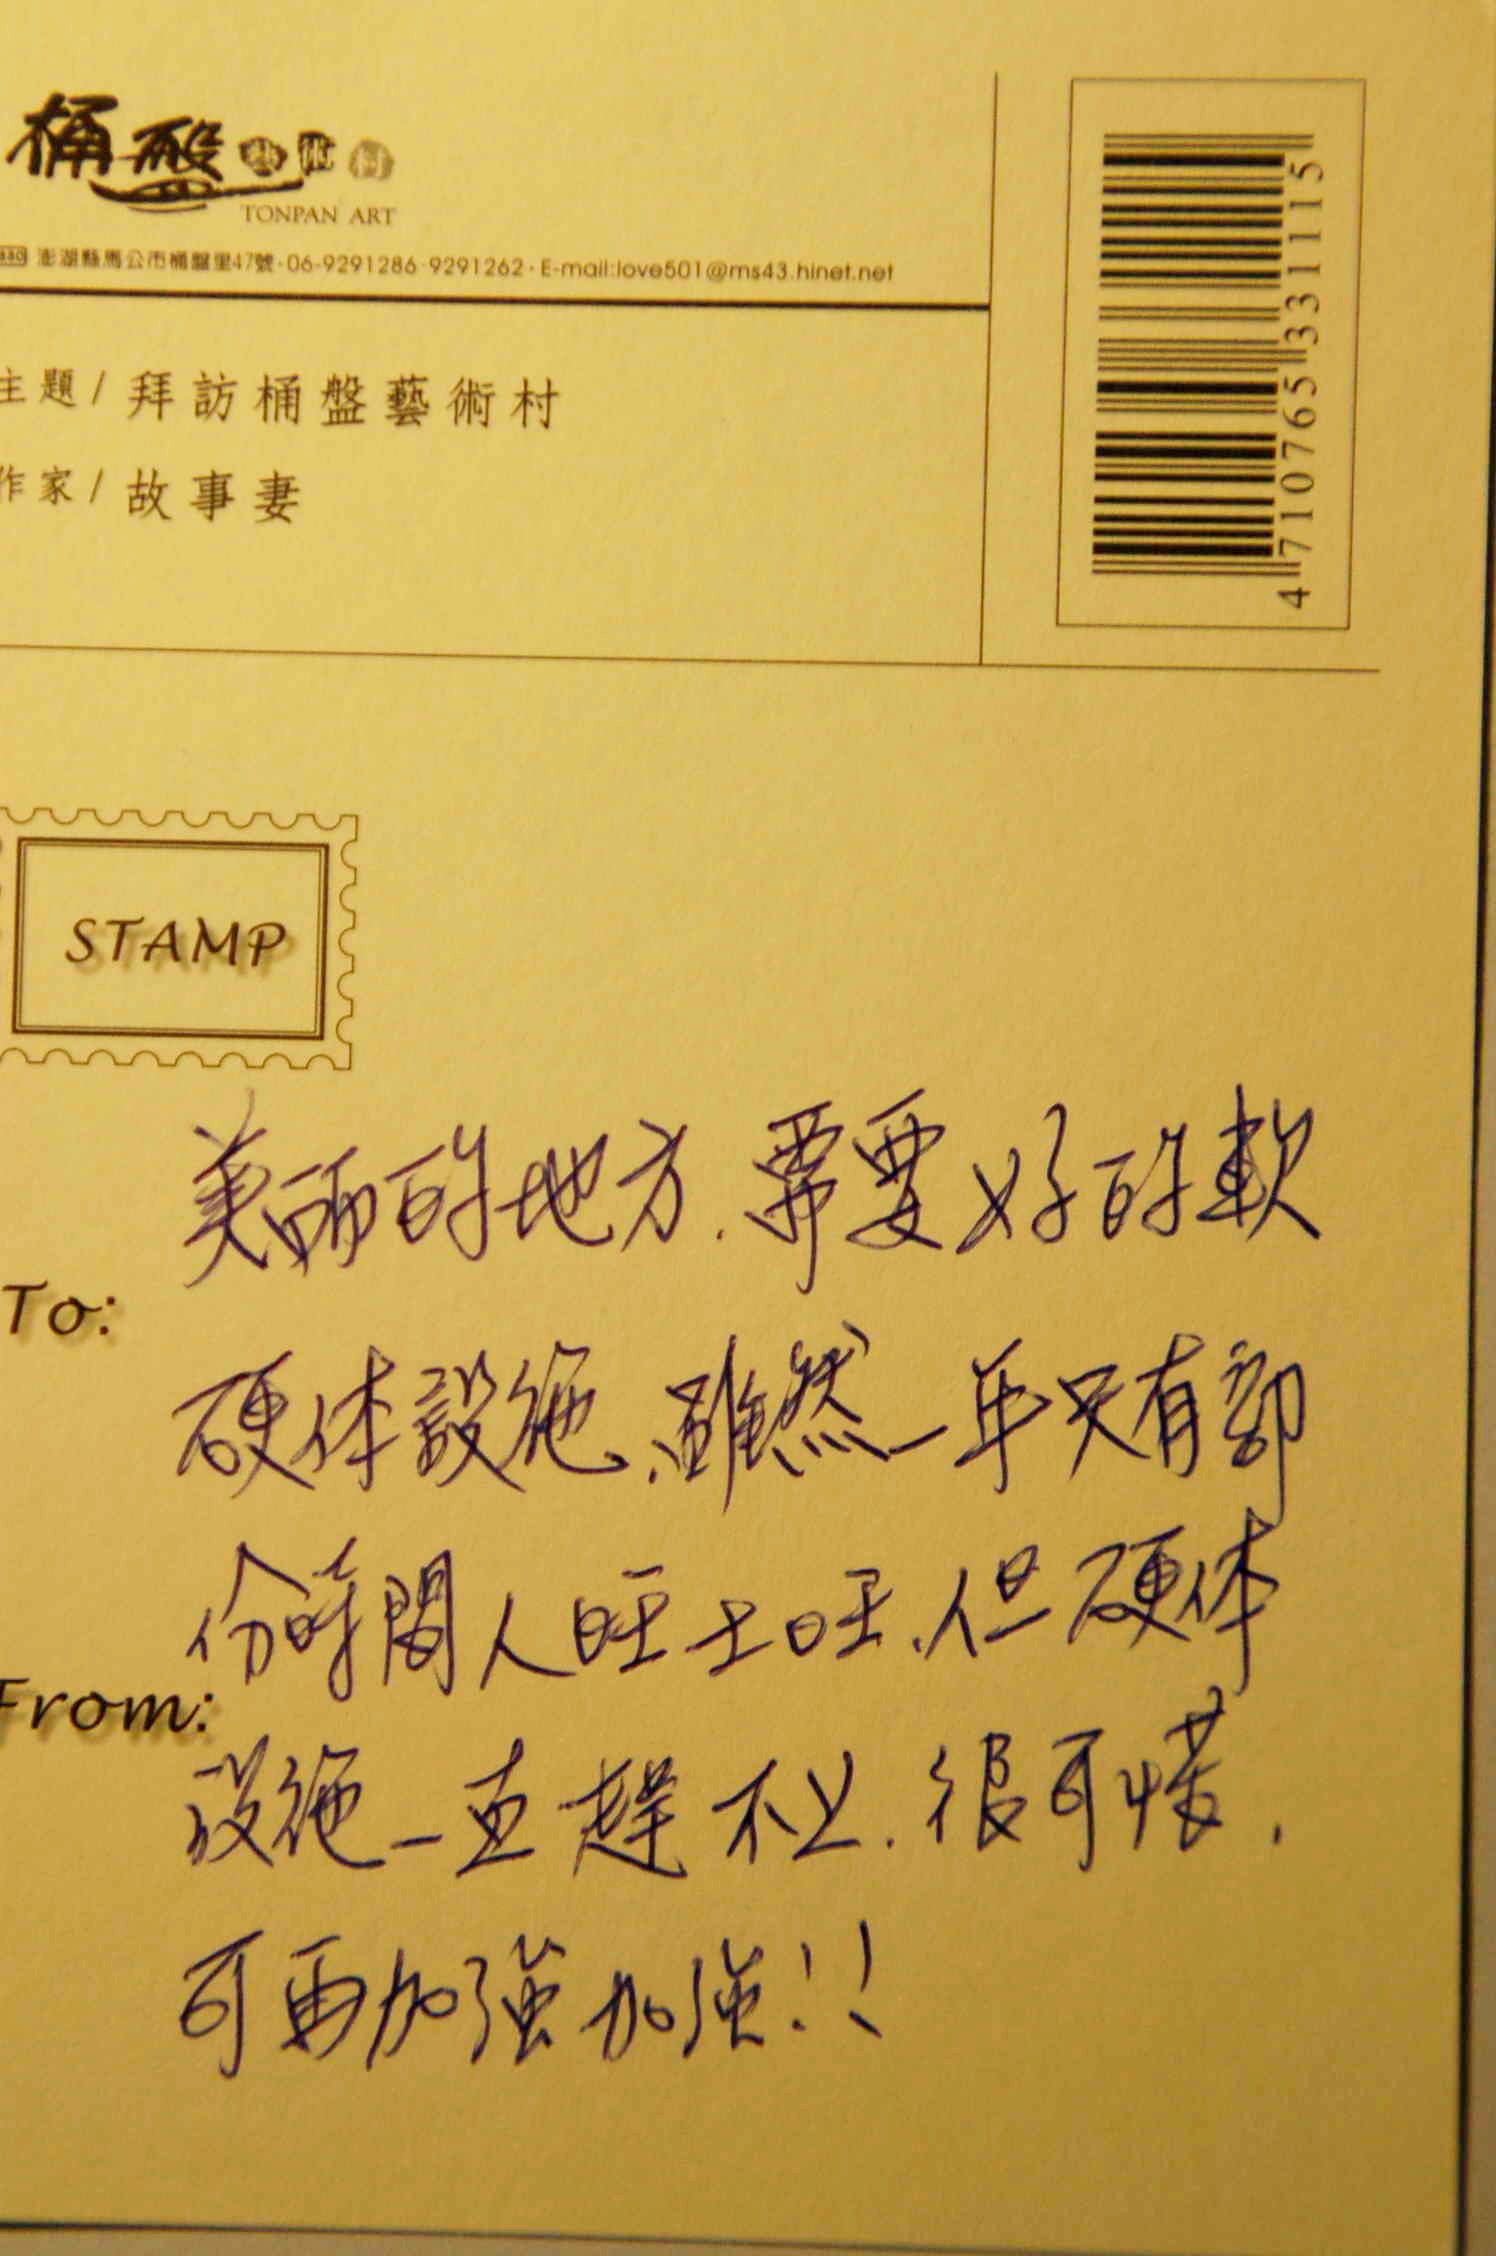 桶盤藝術村
TONPAN ART
880 澎湖縣馬公市桶盤里47號·06-9291286·9291262·E-mail:love501@ms43.hinet.net
主題/拜訪桶盤藝術村
作家/故事妻
4 710765 331115
STAMP
美丽的地方.需要好的軟
To:
硬体設施.雖然一年只有部
份時間人旺土旺.但硬体
From:
設施一直趕不上.很可惜.
可再加強加強!!